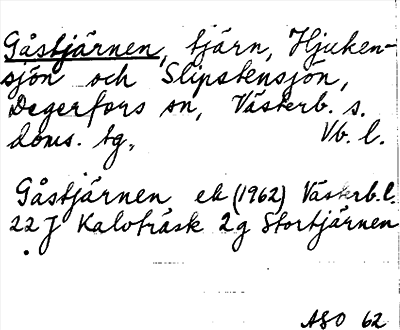 Gåstjärnen, tjärn, Hjuken-
sjön och Slipstensjön,
Degerfors sn, Västerb. s.
doms. tg, Vb. l.
Gåstjärnen ek (1962) Västerb. l.
22 J Kalvträsk 2 g Stortjärnen
ASO 62